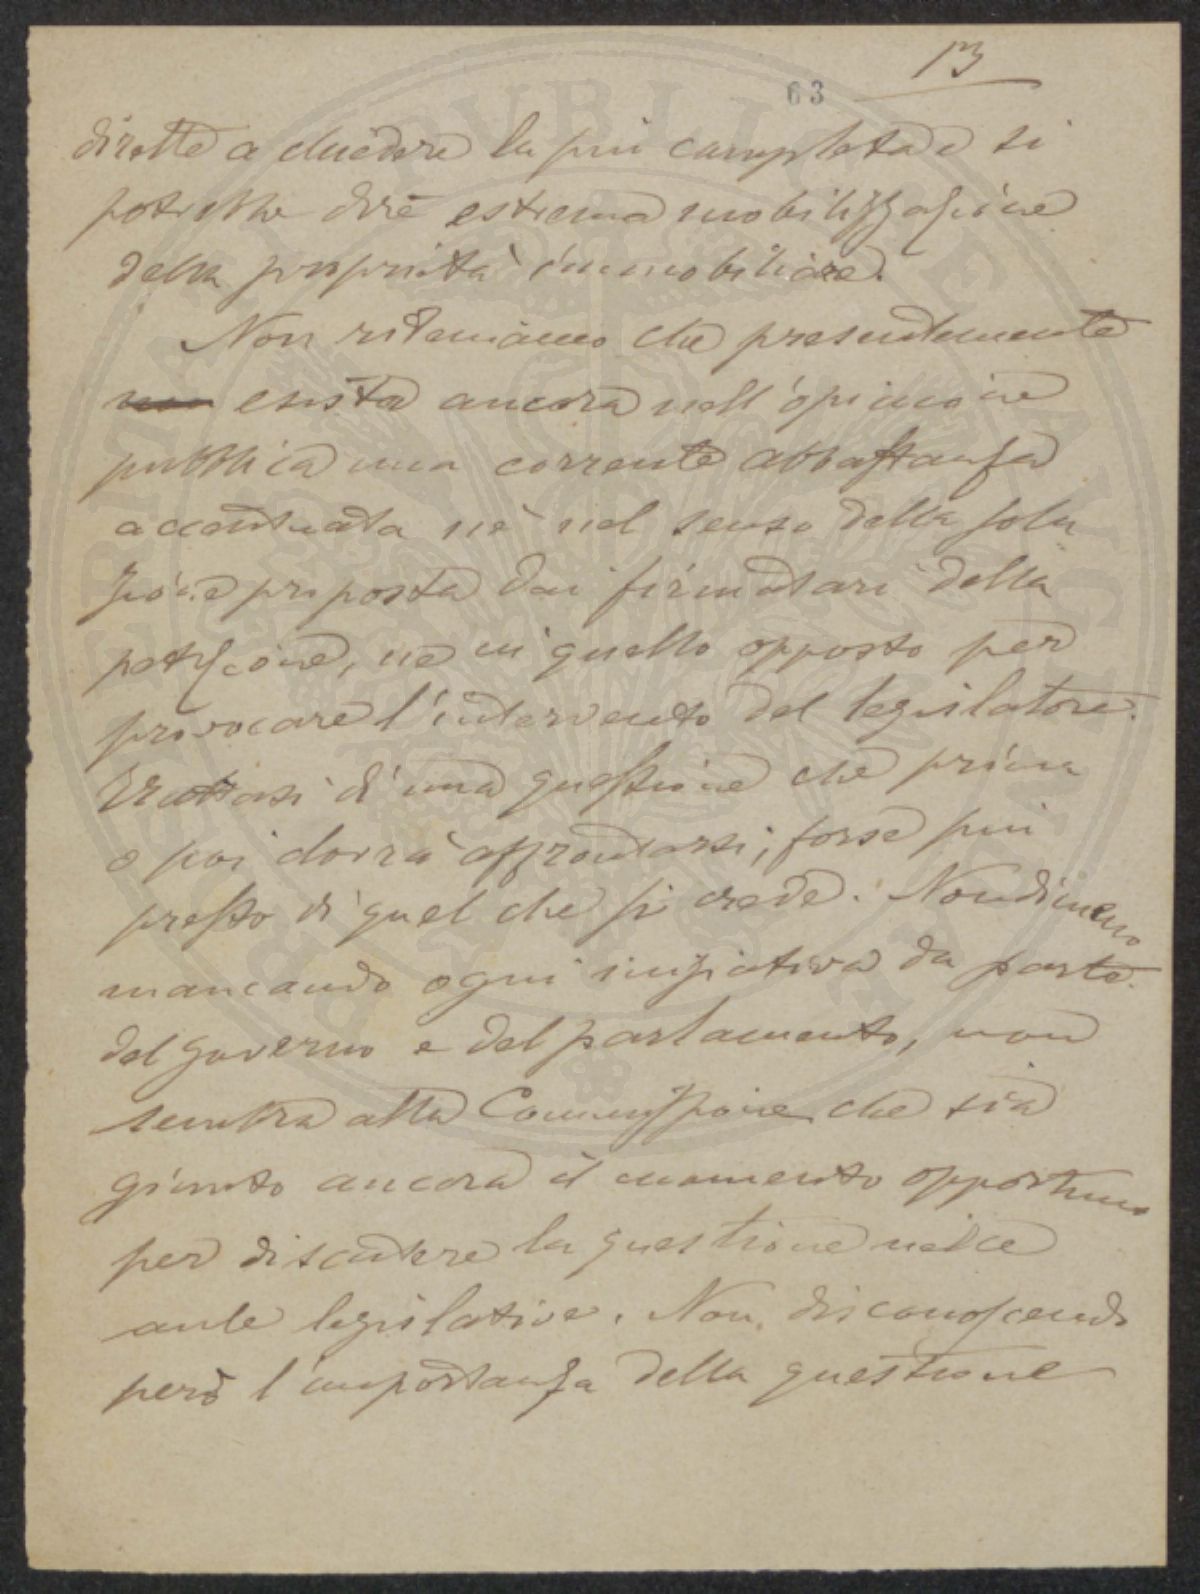 13
63
dirette a chiedere la più completa e si
potrebbe dire estrema mobilizzazione
della proprietà immobiliare.
Non riteniamo che presentemente
non esista ancora nell'opinione
pubblica una corrente abbastanza
accentuata nè nel senso della solu
zione proposta dai firmatari della
petizione, nè in quello opposto per
provocare l'intervento del legislatore.
Trattasi di una questione che prima
o poi dovrà affrontarsi; forse più
presto di quel che si crede. Nondimeno
mancando ogni iniziativa da parte
del governo e del parlamento, non
sembra alla Commissione che sia
giunto ancora il momento opportuno
per discutere la questione nelle
aule legislative. Non disconoscendo
però l'importanza della questione